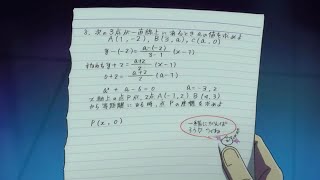 8. 次の3点が一直線上にあるとき aの値を求めよ
A(1, -2), B(3, a), C(a, 0)
y-(-2)= a-(-2)/3-1 (x-1)
y+2 = a+2/2 (x-1)
0+2= a+2/2 (a-1)
a²+a-6=0 a=-3, 2
x軸上の点Pが, 2点A(-1, 2) B(4, 3)
から等距離にある時, 点Pの座標を求めよ
P(x, 0)
一緒にがんば